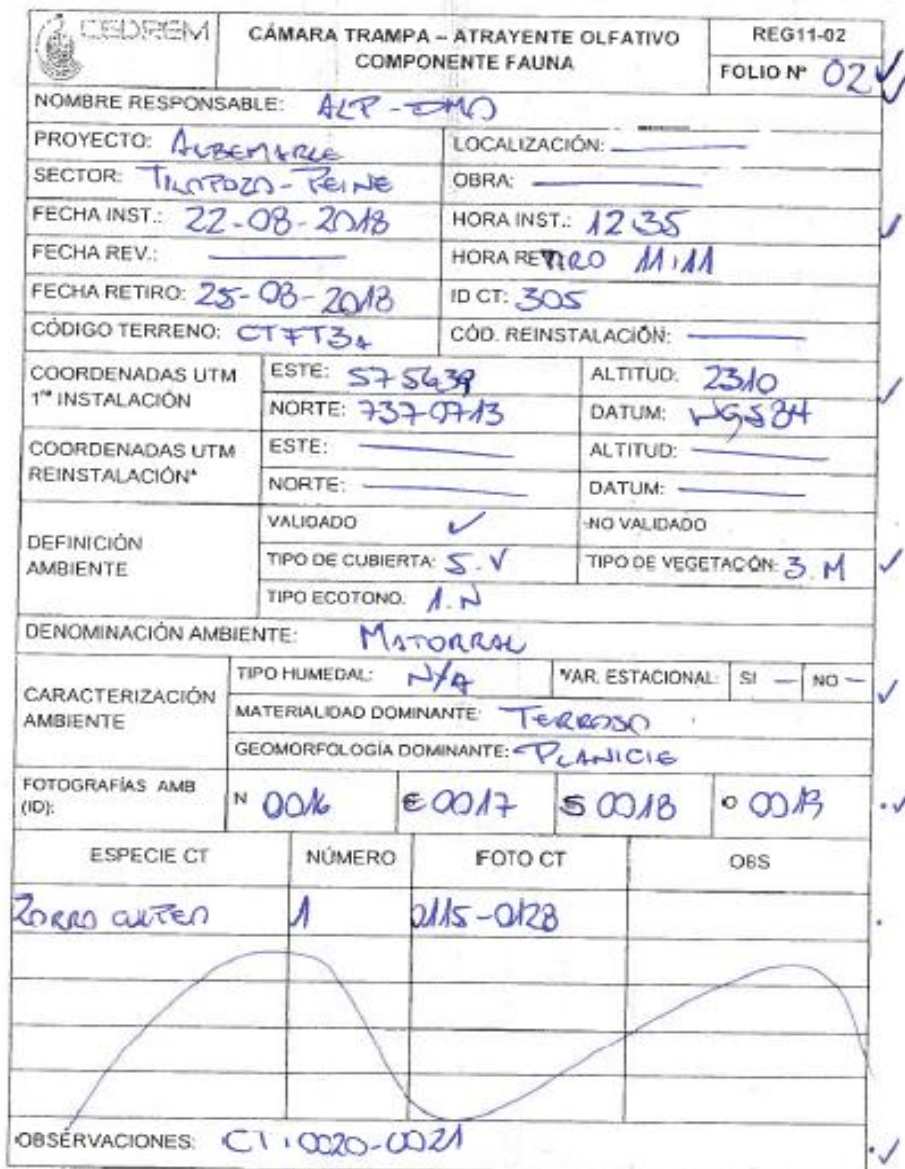 CEDREM
CÁMARA TRAMPA – ATRAYENTE OLFATIVO
COMPONENTE FAUNA
REG11-02
FOLIO Nº 02
NOMBRE RESPONSABLE: ALP - DMO
PROYECTO: ALBEMARLE LOCALIZACIÓN:
SECTOR: TILOPOZO - PEINE OBRA:
FECHA INST.: 22-08-2018 HORA INST.: 12:35
FECHA REV.: HORA RETIRO 11:11
FECHA RETIRO: 25-08-2018 ID CT: 305
CÓDIGO TERRENO: CTFT3A CÓD. REINSTALACIÓN:
COORDENADAS UTM
1ra INSTALACIÓN
ESTE: 575639 ALTITUD: 2310
NORTE: 7370713 DATUM: WGS84
COORDENADAS UTM
REINSTALACIÓN*
ESTE: ALTITUD:
NORTE: DATUM:
DEFINICIÓN
AMBIENTE
VALIDADO ✓ NO VALIDADO
TIPO DE CUBIERTA: 5.V TIPO DE VEGETACÓN: 3.M
TIPO ECOTONO. 1.N
DENOMINACIÓN AMBIENTE: MATORRAL
CARACTERIZACIÓN
AMBIENTE
TIPO HUMEDAL: N/A *VAR. ESTACIONAL: SI — NO —
MATERIALIDAD DOMINANTE: TERROSO
GEOMORFOLOGÍA DOMINANTE: PLANICIE
FOTOGRAFÍAS AMB
(ID):
N 0016 E 0017 S 0018 O 0019
ESPECIE CT NÚMERO FOTO CT OBS
ZORRO CULPEO 1 0115-0128
OBSERVACIONES: CT: 0020-0021